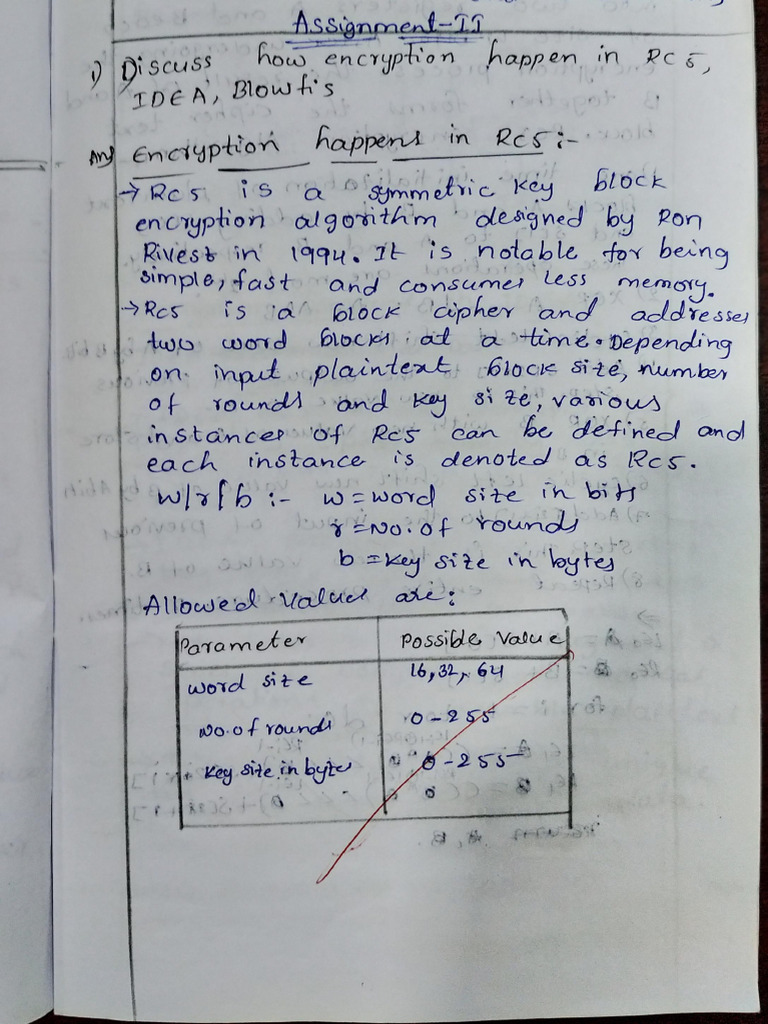 Assignment-II
1) Discuss how encryption happen in RC5,
IDEA, Blowfis
Ans Encryption happens in RC5:-
→ RC5 is a symmetric key block
encryption algorithm designed by Ron
Rivest in 1994. It is notable for being
simple, fast and consumes less memory.
→ RC5 is a block cipher and addresses
two word blocks at a time. Depending
on input plaintext block size, number
of rounds and key size, various
instances of RC5 can be defined and
each instance is denoted as RC5.
w/r/b :- w = word size in bits
r = No. of rounds
b = key size in bytes
Allowed values are:
Parameter Possible Value
word size 16, 32, 64
No. of rounds 0-255
key size in bytes 0-255